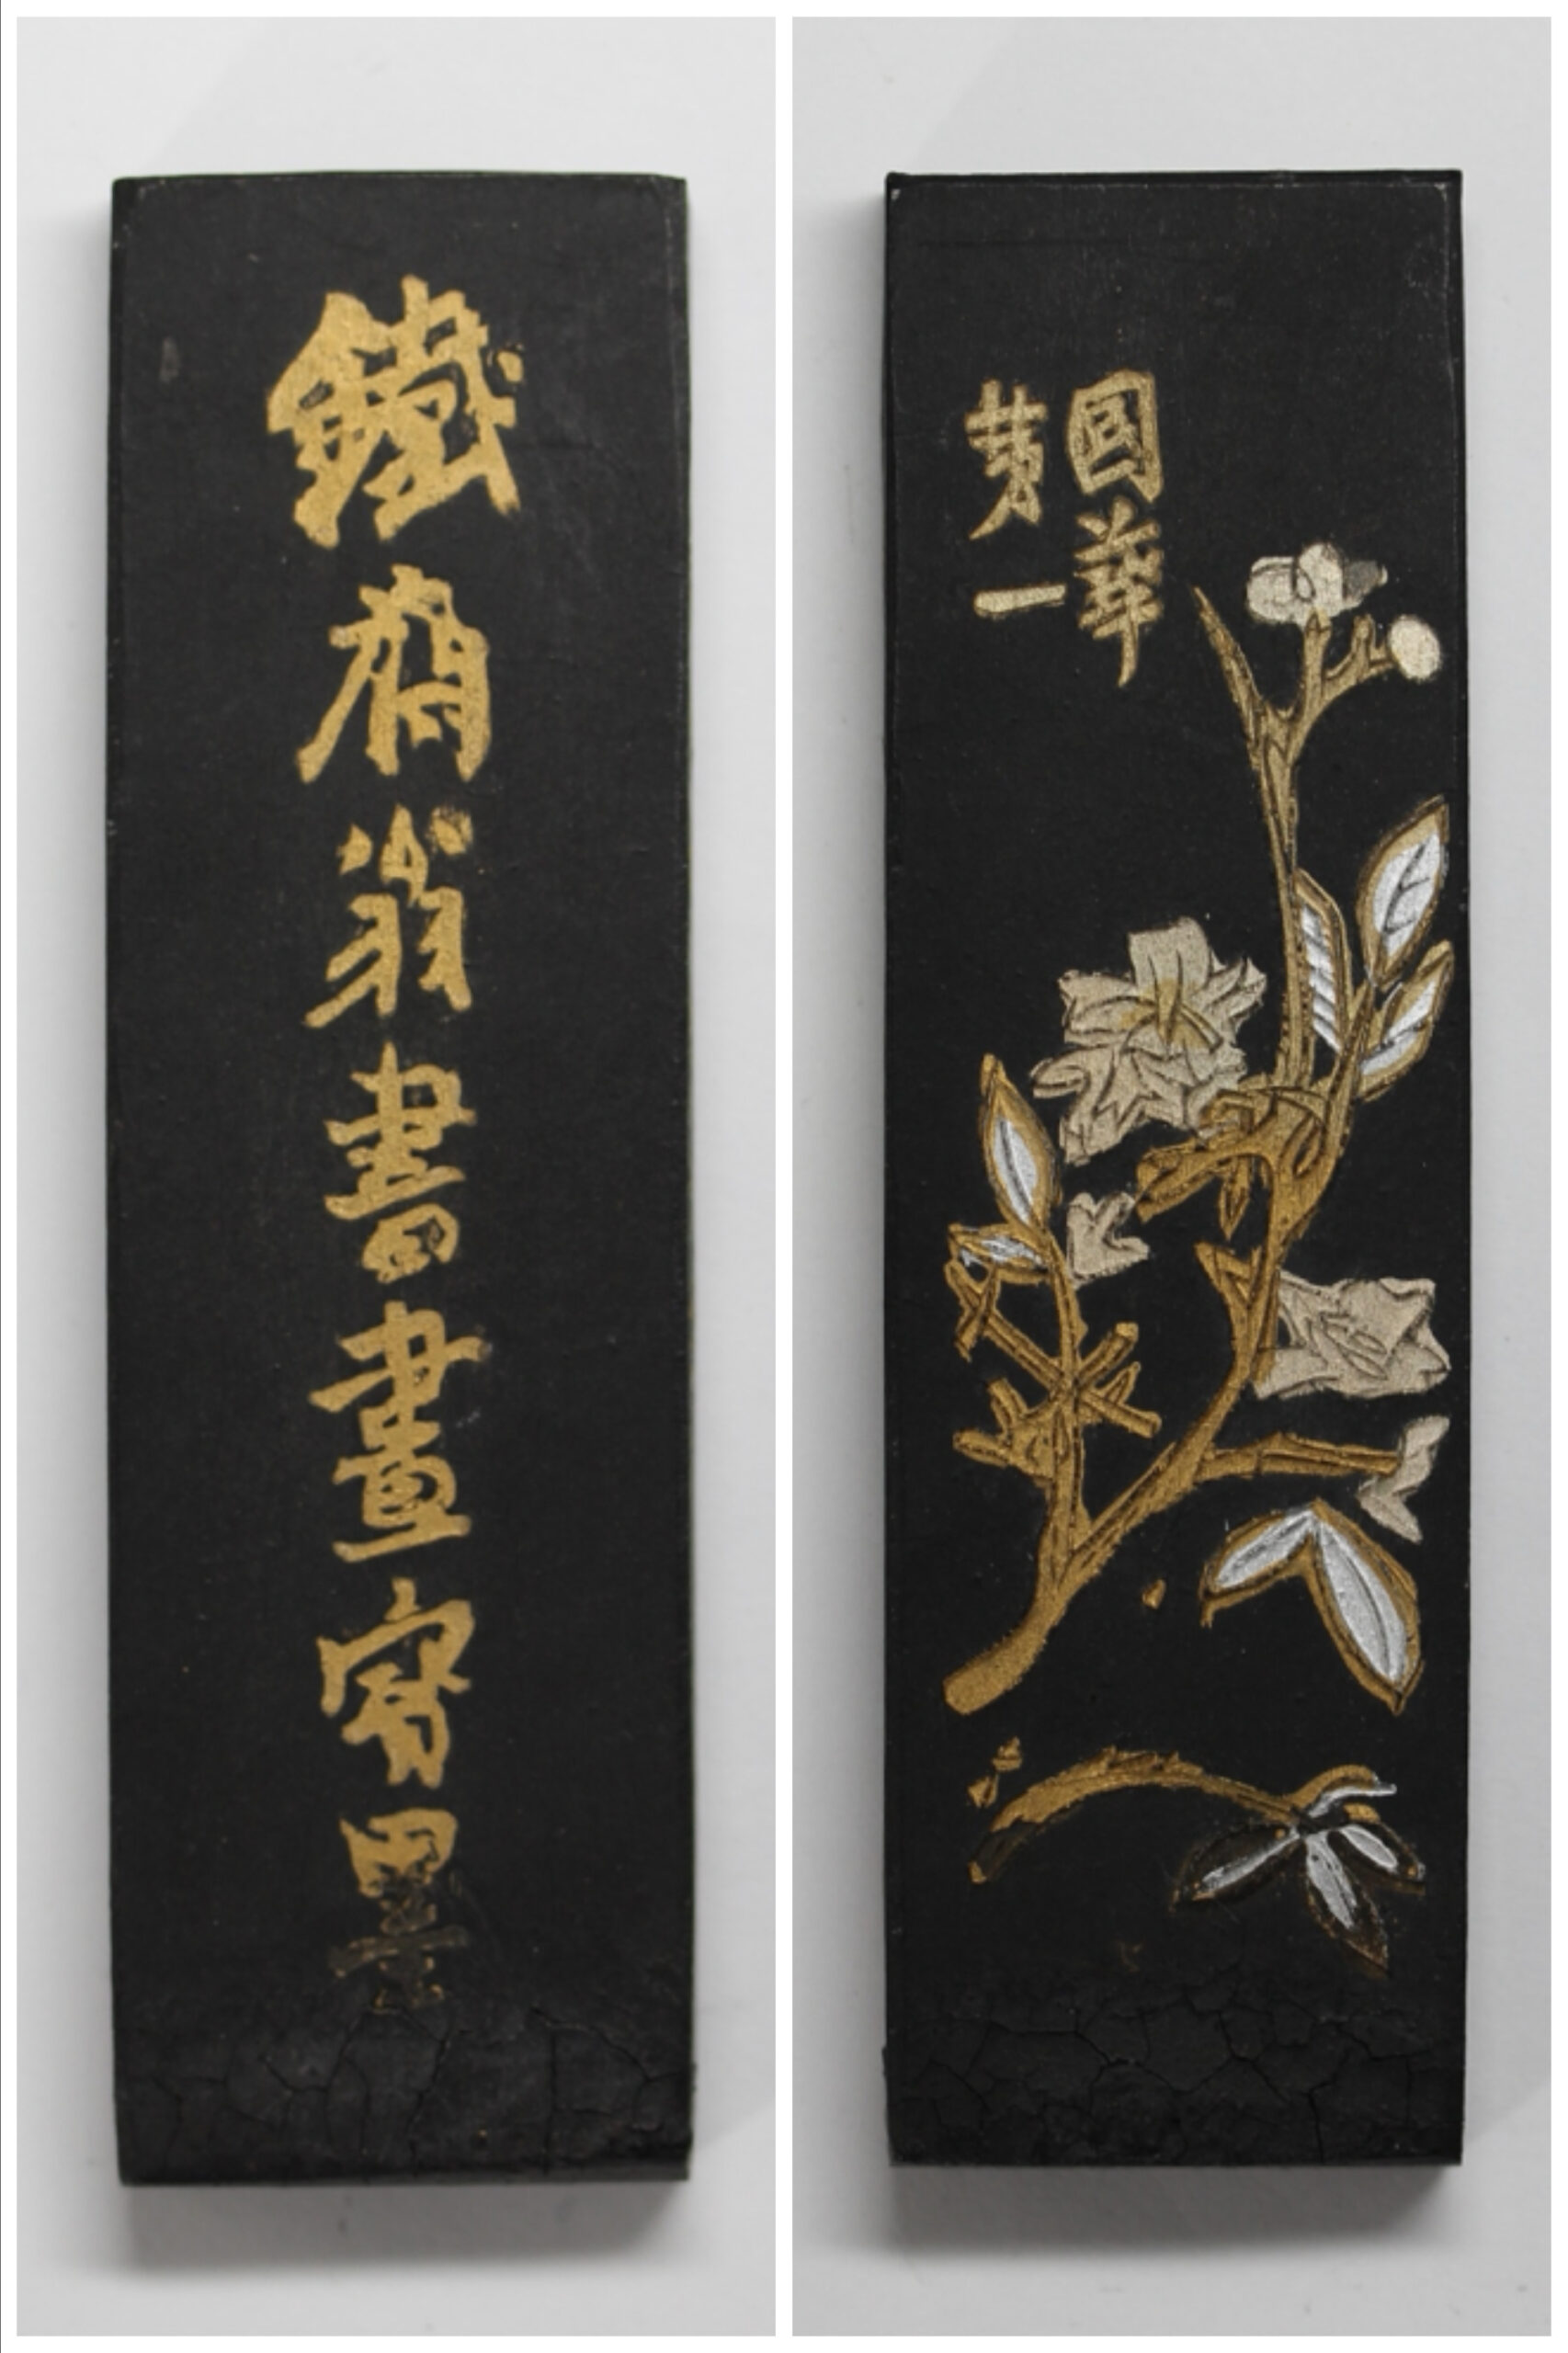 鐵齋翁書畫寶墨
國華
第一